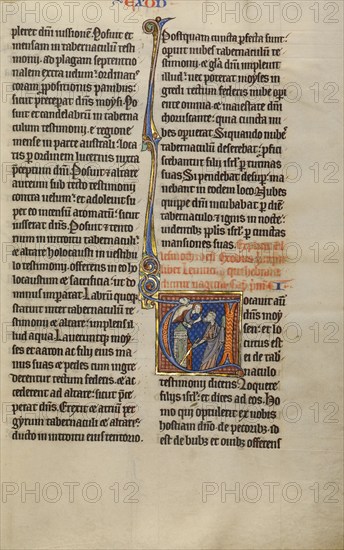 EXOD
pleret dñi iussionem. Posuit et
mensam in tabernaculum testi
monii. ad plagam septentrio
nalem extra uelum: ordinatis
coram propositionis panibus:
sicut preceperat dñs moysi. Po
suit et candelabrum in taberna
culum testimonii. e regione
mense in parte australi: loca
tis per ordinem lucernis iuxta
preceptum dñi. Posuit et altare
aureum sub tecto testimonii
contra uelum: et adoleuit su
per eo incensum aromatum: sicut
iusserat dñs. Posuit et tento
rium in introitu tabernaculi:
et altare holocausti in uestibu
lo testimonii. offerens in eo ho
locaustum et sacrificia: ut do
minus imperarat. Labrum quoque
statuit inter tabernaculum te
stimonii et altare: implens il
lud aqua. Laueruntque moy
ses et aaron ac filii eius ma
nus suas et pedes cum ingre
derentur tectum federis. et ac
cederent ad altare: sicut prece
perat dñs. Erexit et atrium per
gyrum tabernaculi et altaris:
ducto in introitu eius tentorio.
Postquam cuncta perfecta sunt:
operuit nubes tabernaculum te
stimonii. et gloria dñi impleuit
illud. nec poterat moyses in
gredi tectum federis nube ope
riente omnia. et maiestate dñi
choruscante: quia cuncta nu
bes operuerat. Siquando nubes
tabernaculum deserebat: profici
scebantur filii isrl per turmas
suas. Si pendebat desuper: ma
nebant in eodem loco. Nubes
quippe dñi incubabat per diem
tabernaculo. et ignis in nocte:
uidentibus populis isrl per cunctas
mansiones suas. Explicit
liber Exodus
V
ocauit autem
dñs moy
sen: et lo
cutus est
ei de tab
naculo
testimonii dicens. Loquere
filiis isrl. et dices ad eos. Ho
mo qui optulerit ex uobis
hostiam dño. de pecoribus. id
est de bubus et ouibus offerens
PHOTO12